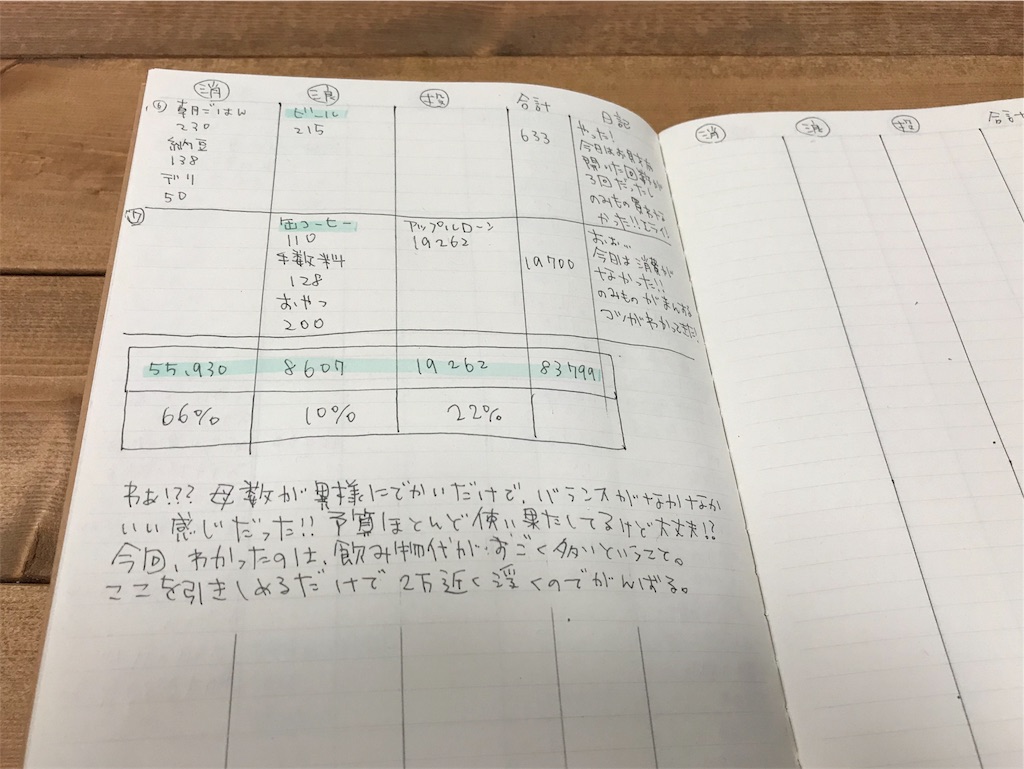 消 浪 投 合計 日記
⑯ 朝ごはん
230
納豆
138
デリ
50
ビール
215
633
やった!
今日はお財布
開いた回数が
3回だったし
のみもの買わな
かった!!エライ!
⑰
缶コーヒー
110
手数料
128
おやつ
200
アップルローン
19262
19700
おお…
今日は消費が
なかった!!
のみものがまんする
コツがわかってきた!
55,930 8607 19262 83799
66% 10% 22%
わぁ!??母数が異様にでかいだけで、バランスがなかなか
いい感じだった!!予算ほとんど使い果たしてるけど大丈夫!?
今回、わかったのは、飲み物代がすごく多いということ。
ここを引きしめるだけで2万近く浮くのでがんばる。
消 浪 投 合計